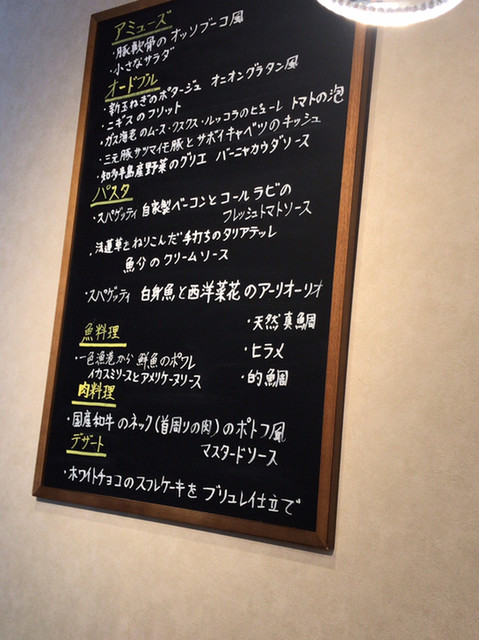 アミューズ
・豚軟骨のオッソブーコ風
・小さなサラダ
オードブル
・新玉ねぎのポタージュ オニオングラタン風
・ニギスのフリット
・ガス海老のムース・クスクス・ルッコラのピューレ トマトの泡
・三元豚サツマイモ豚とサボイキャベツのキッシュ
・知多半島産野菜のグリエ バーニャカウダソース
パスタ
・スパゲッティ 自家製ベーコンとコールラビの
フレッシュトマトソース
・法蓮草とねりこんだ手打ちのタリアテッレ
魚介のクリームソース
・スパゲッティ 白身魚と西洋菜花のアーリオーリオ
魚料理
・天然真鯛
・一色漁港から 鮮魚のポワレ
・ヒラメ
イカスミソースとアメリケーヌソース
・的鯛
肉料理
・国産和牛のネック(首周りの肉)のポトフ風
マスタードソース
デザート
・ホワイトチョコのスフレケーキを ブリュレイ仕立て